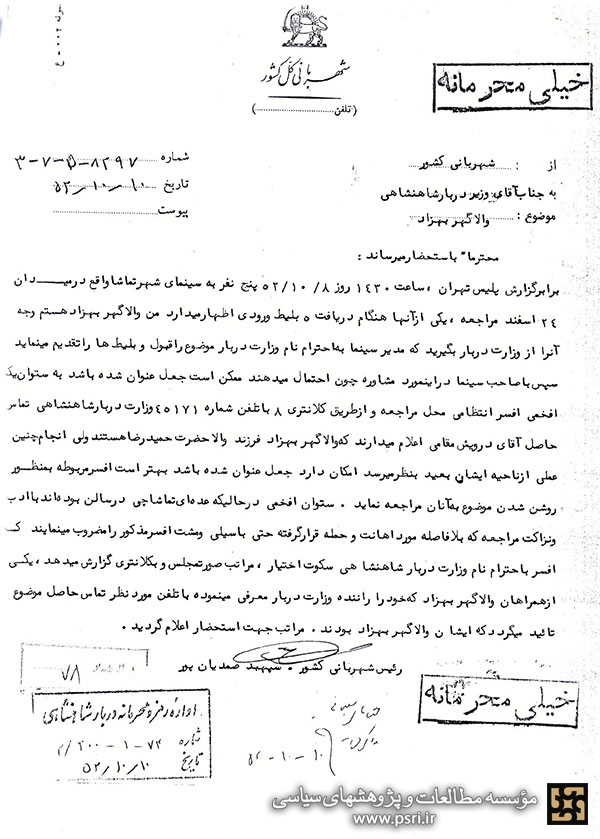 شهربانی کل کشور
(تلفن ..........)
خیلی محرمانه
از : شهربانی کشور
شماره ۸۲۹۷-۵-۷-۳
به جناب آقای وزیر دربار شاهنشاهی
تاریخ ۵۲/۱۰/۱۰
موضوع : والاگهر بهزاد
پیوست
محترما" باستحضار میرساند :
برابر گزارش پلیس تهران ، ساعت ۱۴۳۰ روز ۵۲/۱۰/۸ پنج نفر به سینمای شهر تماشا واقع در میدان
۲۴ اسفند مراجعه ، یکی از آنها هنگام دریافت ۵ بلیط ورودی اظهار میدارد من والاگهر بهزاد هستم وجه
آنرا از وزارت دربار بگیرید که مدیر سینما به احترام نام وزارت دربار موضوع را قبول و بلیط ها را تقدیم مینماید
سپس با صاحب سینما در اینمورد مشاوره چون احتمال میدهند ممکن است جعل عنوان شده باشد به ستوان یک
افخمی افسر انتظامی محل مراجعه و از طریق کلانتری ۸ با تلفن شماره ۴۵۱۷۱ وزارت دربار شاهنشاهی تماس
حاصل آقای درویش مقامی اعلام میدارند که والاگهر بهزاد فرزند والاحضرت حمیدرضا هستند ولی انجام چنین
عملی از ناحیه ایشان بعید بنظر میرسد امکان دارد جعل عنوان شده باشد بهتر است افسر مربوطه بمنظور
روشن شدن موضوع به آنان مراجعه نماید . ستوان افخمی در حالیکه عده ای تماشاچی در سالن بوده اند با ادب
ونزاکت مراجعه که بلافاصله مورد اهانت و حمله قرار گرفته حتی با سیلی ومشت افسر مذکور را مضروب مینمایند که
افسر با احترام نام وزارت دربار شاهنشاهی سکوت اختیار ، مراتب صورتمجلس و بکلانتری گزارش میدهد ، یکی
از همراهان والاگهر بهزاد که خود را راننده وزارت دربار معرفی مینموده با تلفن مورد نظر تماس حاصل موضوع
تائید میگردد که ایشان والاگهر بهزاد بودند . مراتب جهت استحضار اعلام گردید .
رئیس شهربانی کشور . سپهبد صمدیان پور
۷۸
خیلی محرمانه
اداره رمز و محرمانه دربار شاهنشاهی
شماره ۷۲-۱-۲۰۰/م
تاریخ ۵۲/۱۰/۱۰
۵۲-۱۰-۱۰
مؤسسه مطالعات و پژوهشهای سیاسی
www.psri.ir